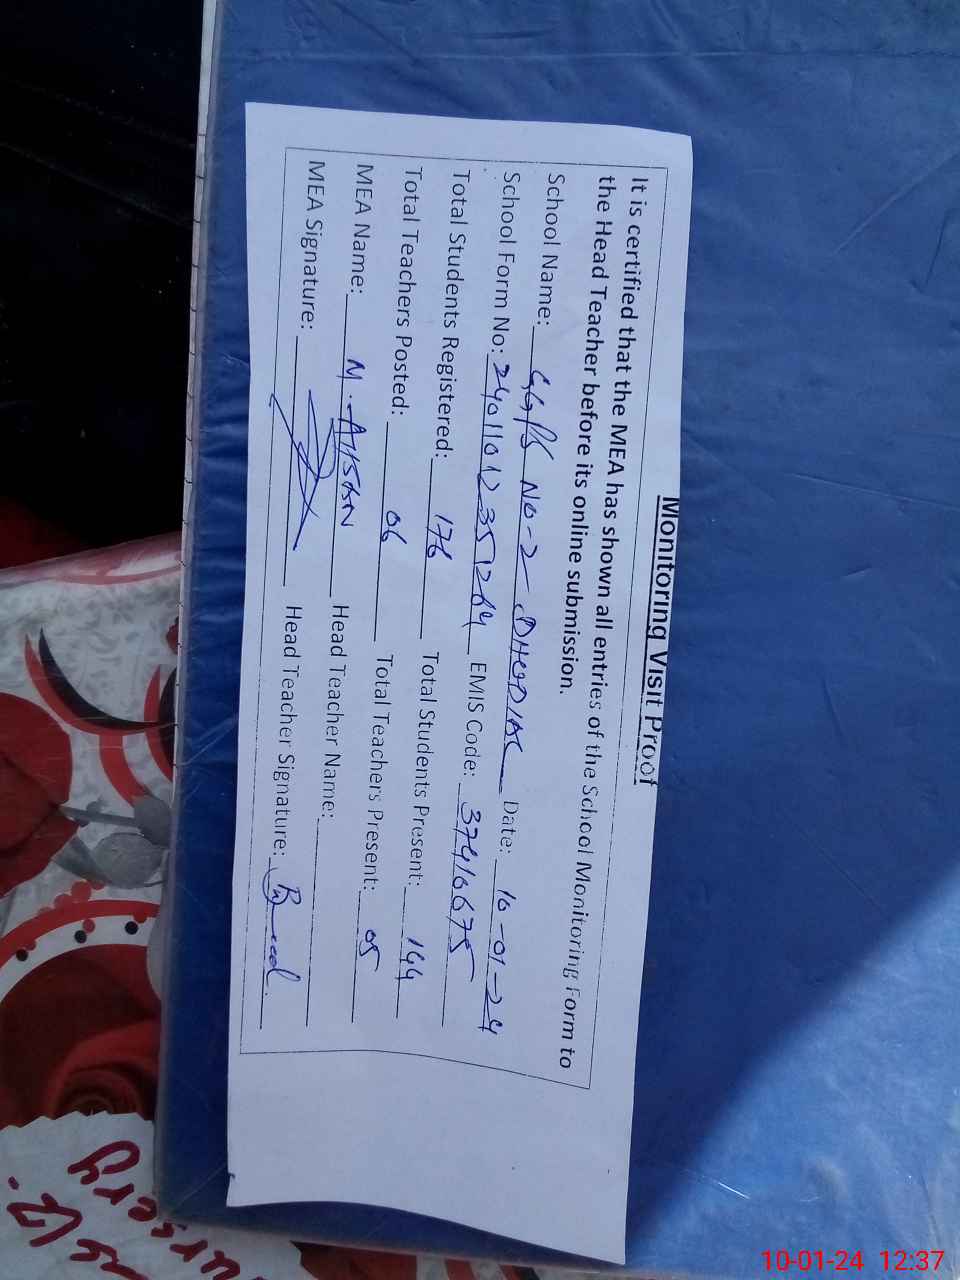 Monitoring Visit Proof
It is certified that the MEA has shown all entries of the School Monitoring Form to
the Head Teacher before its online submission.
School Name: GGPS NO-2 DHUDIAL Date: 10-01-24
School Form No: 24011012351264 EMIS Code: 37410675
Total Students Registered: 176 Total Students Present: 144
Total Teachers Posted: 06 Total Teachers Present: 05
MEA Name: M. AHSAN Head Teacher Name:
MEA Signature: Head Teacher Signature:
10-01-24 12:37